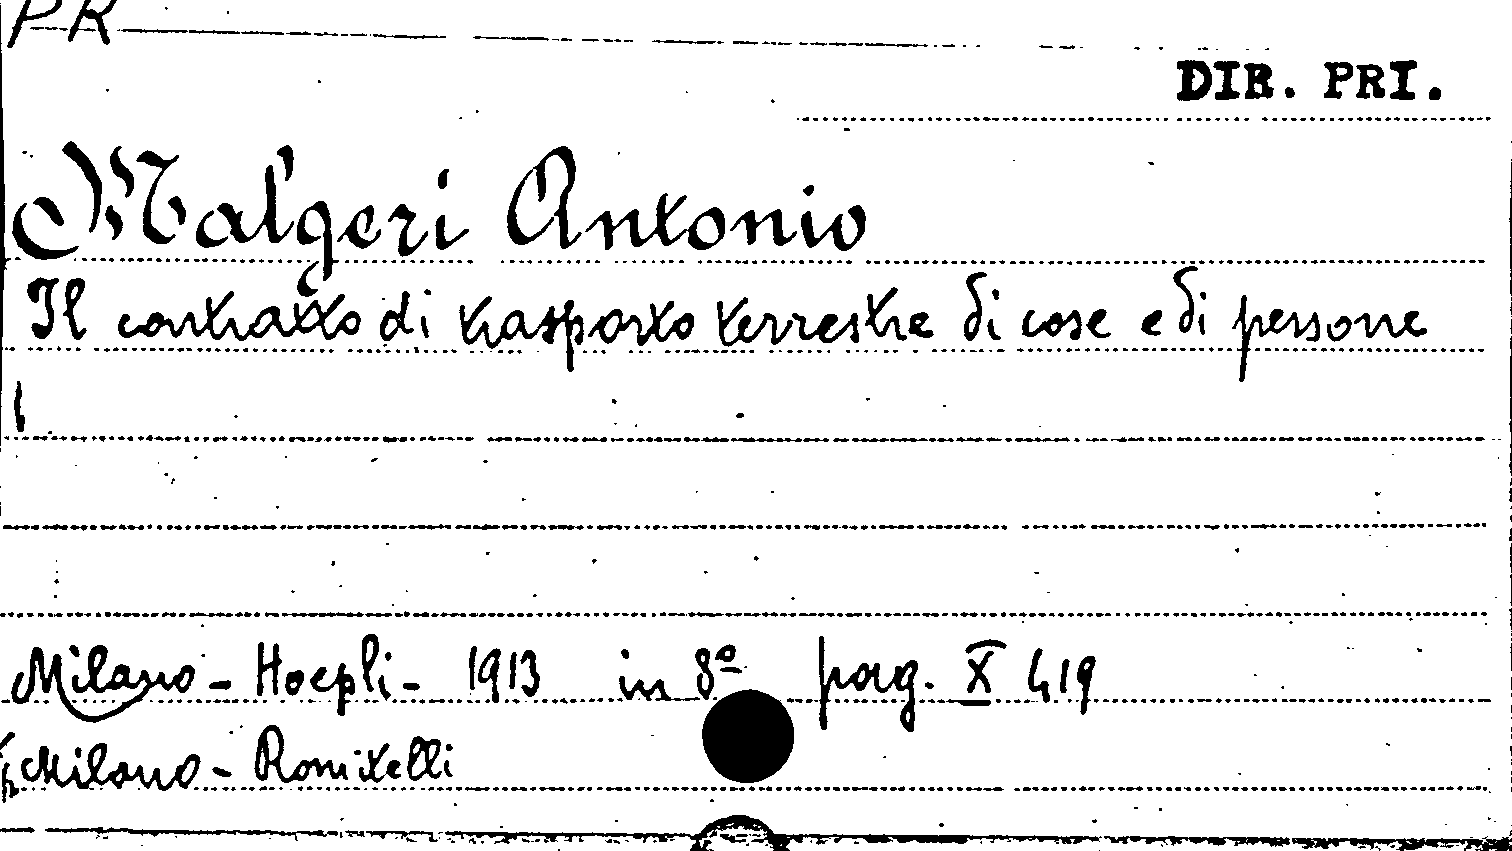 PR
DIR. PRI.
Malgeri Antonio
Il contratto di trasporto terrestre di cose e di persone
Milano - Hoepli - 1913 in 8º pag. X 419
Milano - Romitelli